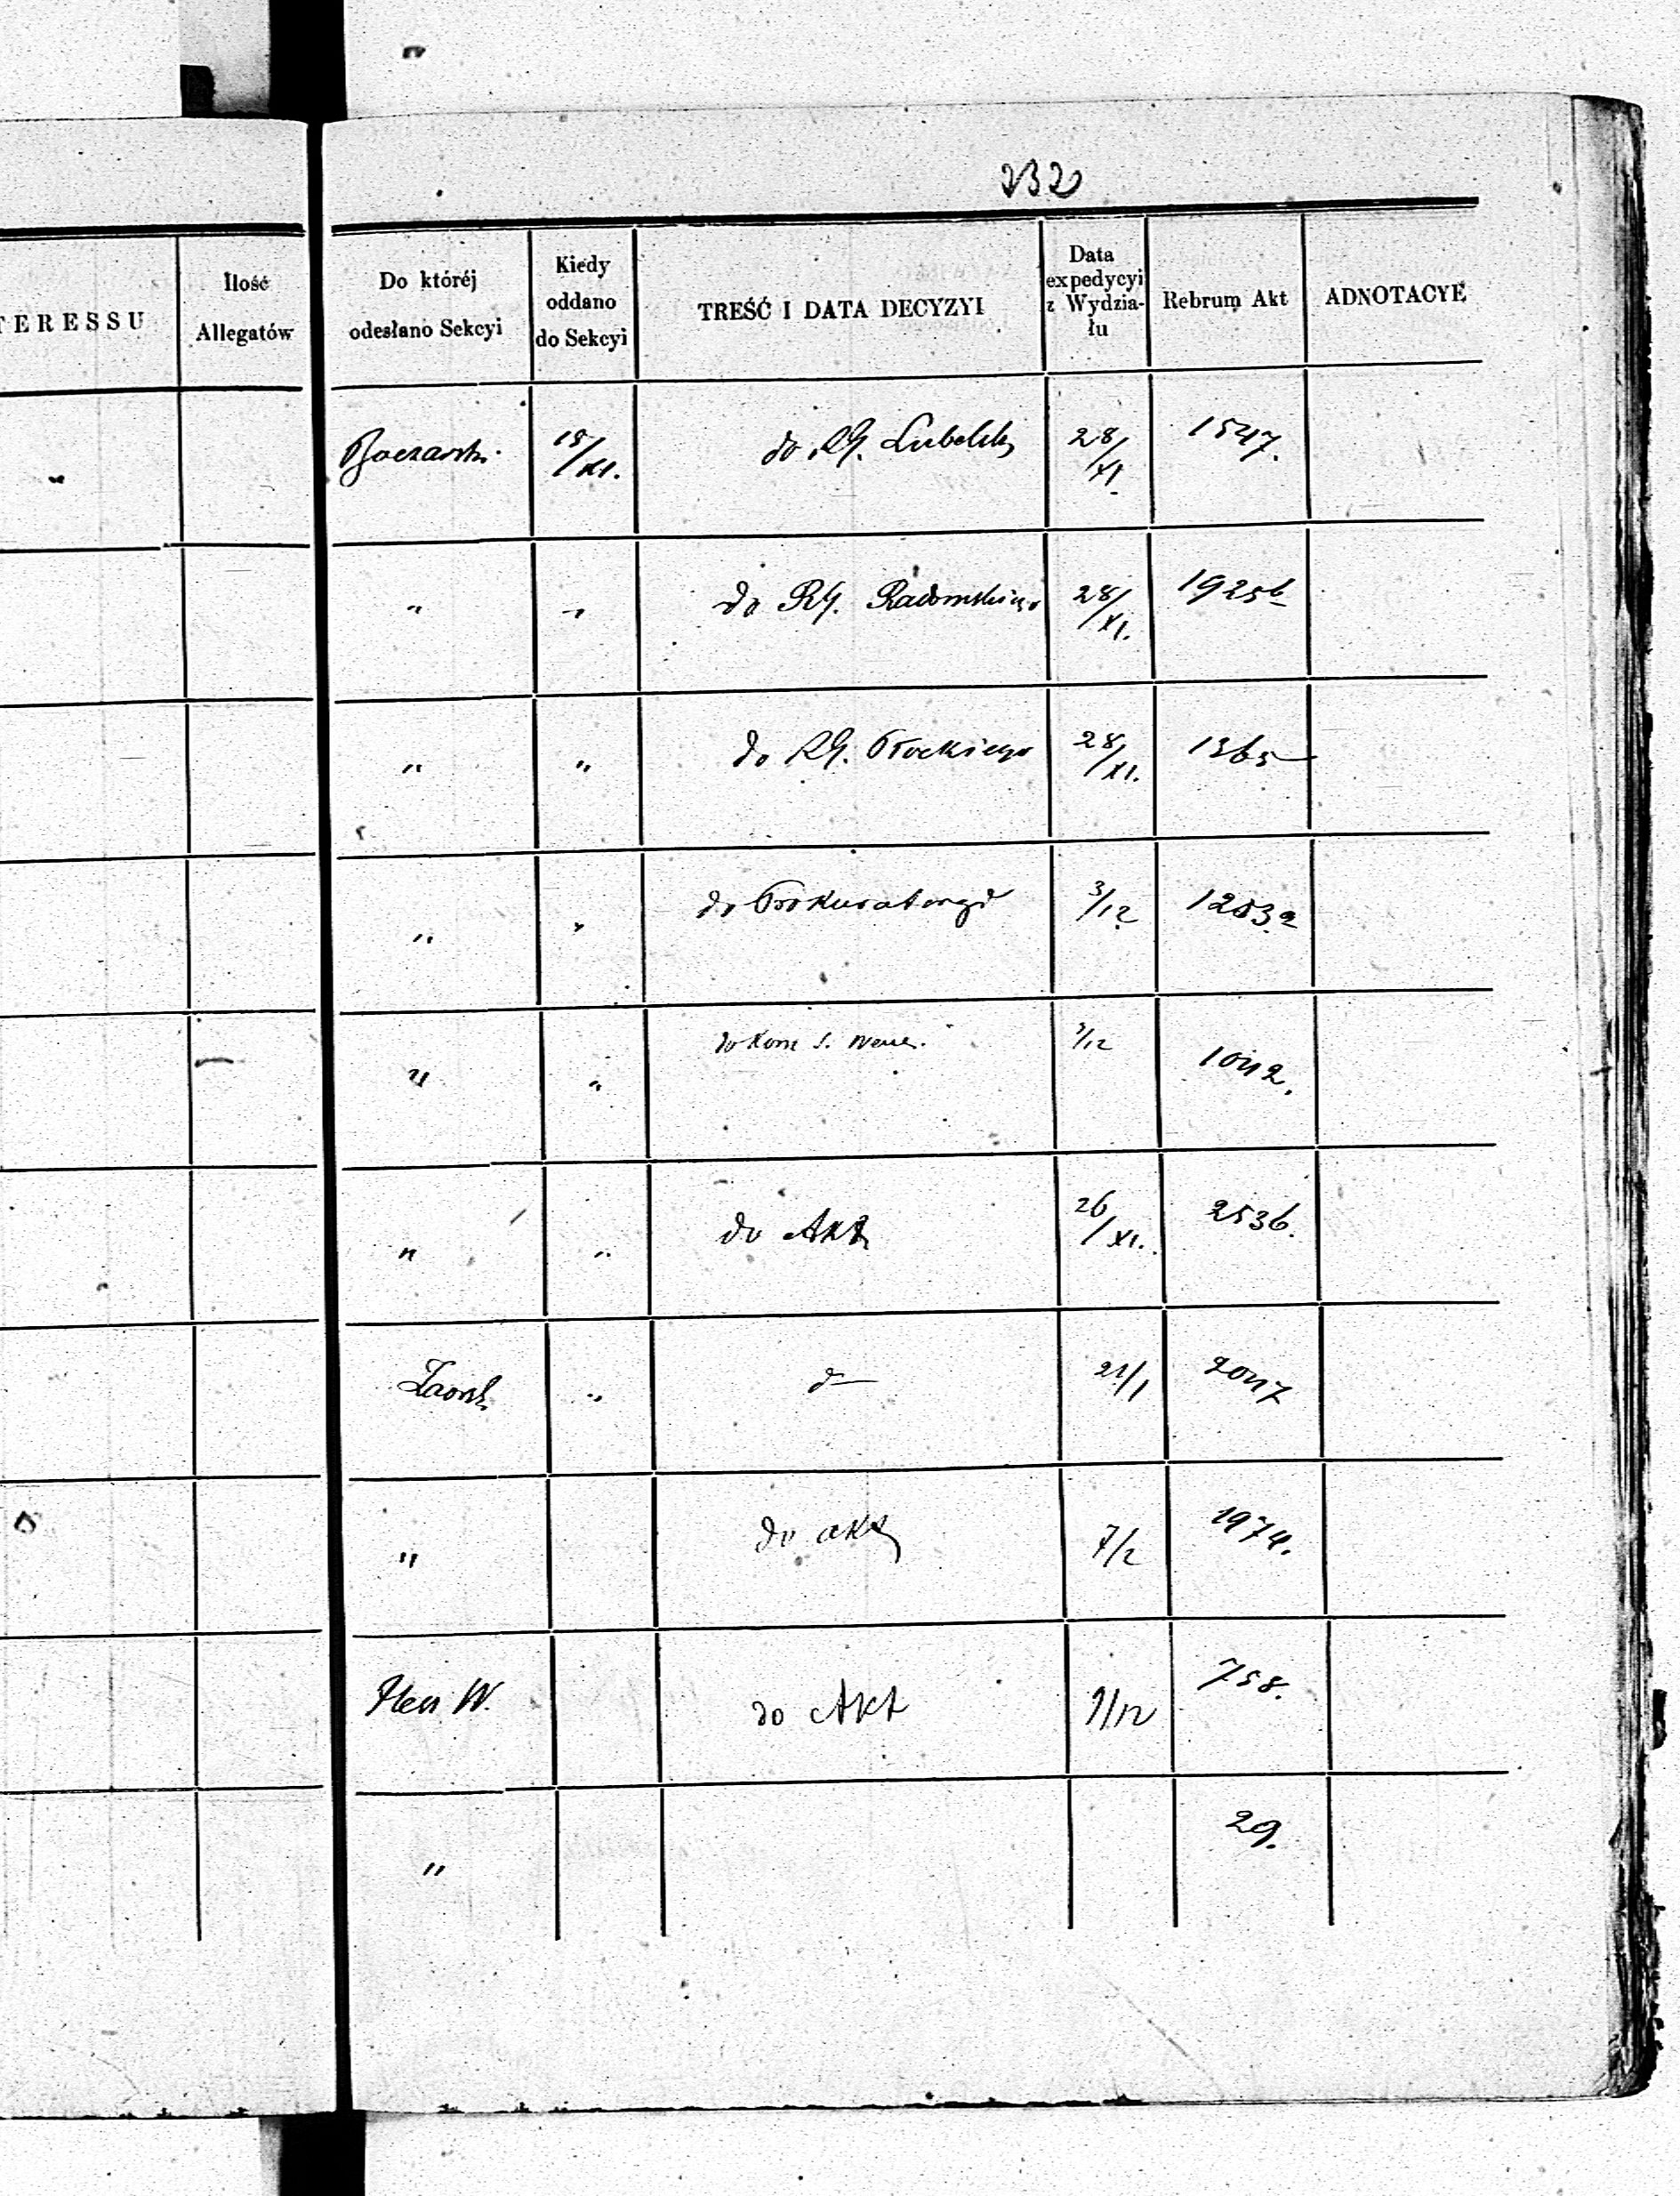 232
TERESSU
Ilość
Allegatów
Do któréj
odesłano Sekcyi
Kiedy
oddano
do Sekcyi
TREŚĆ I DATA DECYZYI
Data
expedycyi
z Wydzia-
łu
Rebrum Akt
ADNOTACYE
18/XI. do RG. Lubelsk 28/XI. 1547.
" " do RG. Radomskiego 28/XI. 1925b
" " do RG. Płockiego 28/XI. 1365
" " do Prokuratoryi 3/12 1253a
" " do Kom S. 3/12 1042.
" " do Akt 26/XI. 2536.
" d— 21/1 2047
" do akt 7/2 1974.
W. do Akt 9/12 758.
" 29.